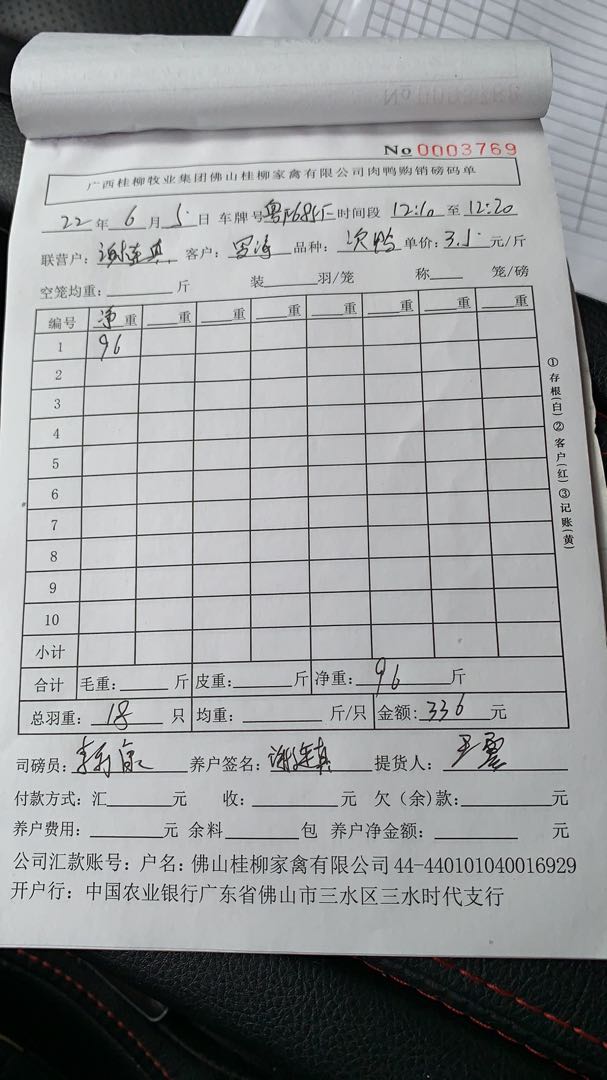 No 0003769
广西桂柳牧业集团佛山桂柳家禽有限公司肉鸭购销磅码单
22年 6 月 5 日 车牌号 时间段 12:10 至 12:20
联营户: 客户: 品种: 次鸭 单价: 3.5 元/斤
空笼均重: 斤 装 羽/笼 称 笼/磅
编号 净重 重 重 重 重 重 重 重
1 96
2
3
4
5
6
7
8
9
10
小计
合计 毛重: 斤 皮重: 斤 净重: 96 斤
总羽重: 18 只 均重: 斤/只 金额: 336 元
司磅员: 养户签名: 提货人:
付款方式: 汇 元 收: 元 欠(余)款: 元
养户费用: 元 余料 包 养户净金额: 元
公司汇款账号: 户名: 佛山桂柳家禽有限公司 44-440101040016929
开户行: 中国农业银行广东省佛山市三水区三水时代支行
①存根(白)②客户(红)③记账(黄)